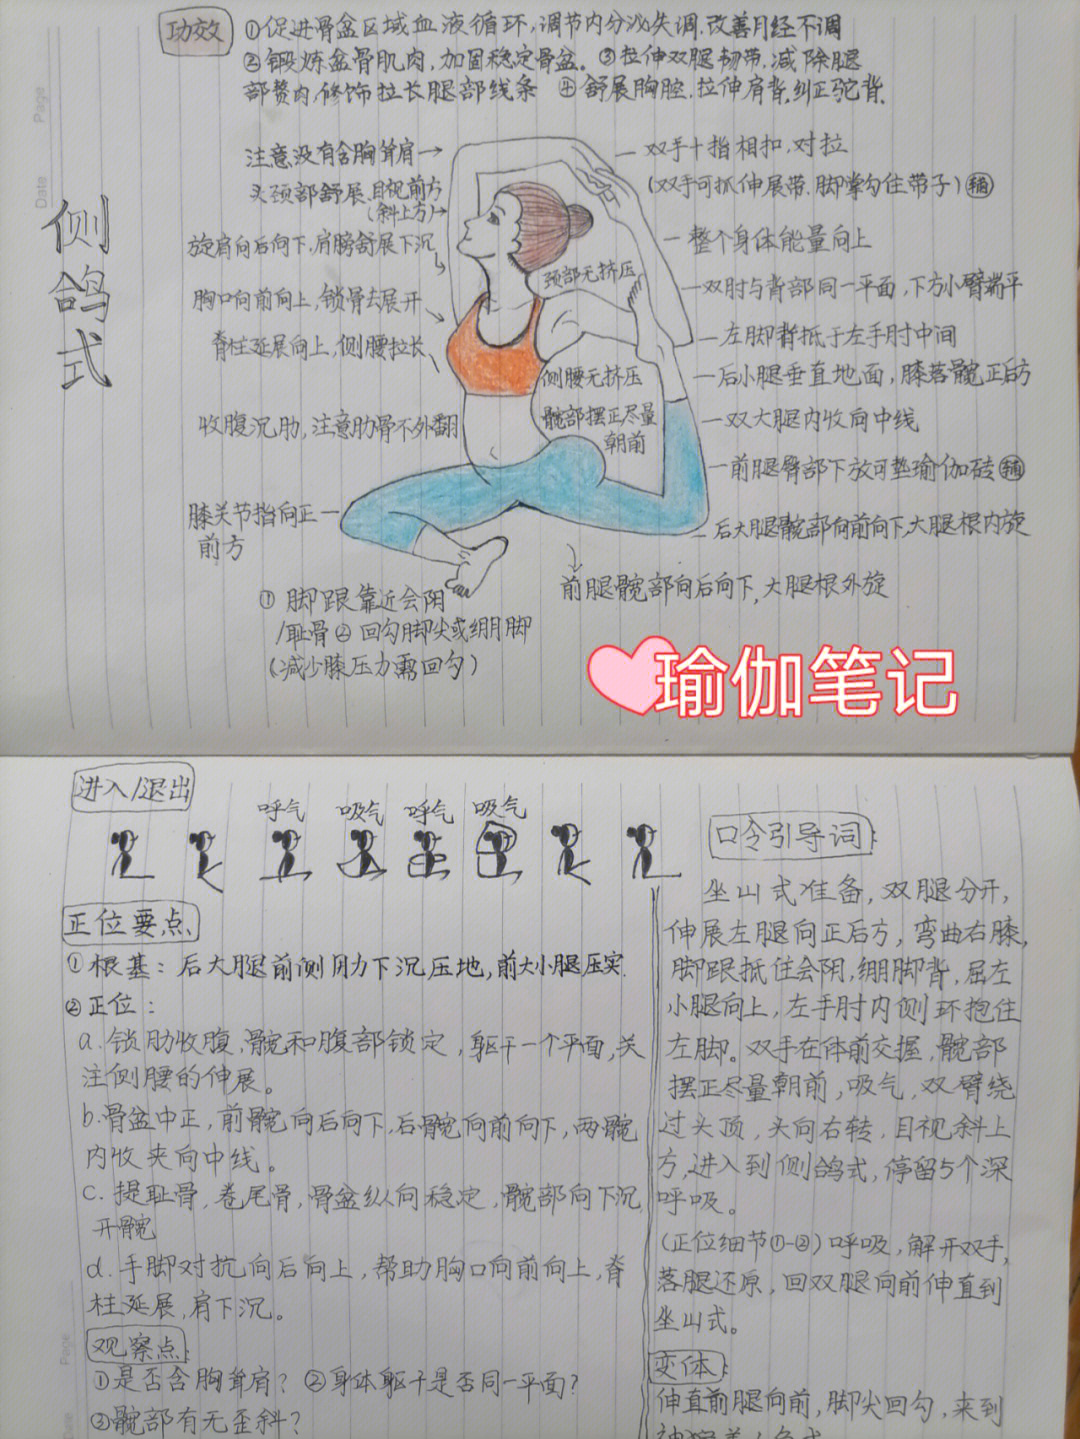 功效
①促进骨盆区域血液循环,调节内分泌失调.改善月经不调
②锻炼盆骨肌肉,加固稳定骨盆。③拉伸双腿韧带,减除腿
部赘肉,修饰拉长腿部线条 ④舒展胸腔.拉伸肩背.纠正驼背.
Page
Date
侧鸽式
注意没有含胸耸肩→
头颈部舒展.目视前方
(斜上方)→
旋肩向后向下,肩膀舒展下沉
胸口向前向上,锁骨去展开
脊柱延展向上,侧腰拉长
收腹沉肋,注意肋骨不外翻
膝关节指向正
前方
颈部无挤压
侧腰无挤压
髋部摆正尽量
朝前
双手十指相扣,对拉
(双手可抓伸展带.脚掌勾住带子)辅
整个身体能量向上
双肘与背部同一平面,下方小臂端平
左脚背抵于左手肘中间
后小腿垂直地面,膝落髋正后方
双大腿内收向中线
前腿臀部下放可垫瑜伽砖辅
后大腿髋部向前向下,大腿根内旋
前腿髋部向后向下,大腿根外旋
① 脚跟靠近会阴
/耻骨②回勾脚尖或绷脚
(减少膝压力需回勾)
瑜伽笔记
进入/退出
呼气 吸气 呼气 吸气
正位要点
①根基:后大腿前侧用力下沉压地,前大小腿压实.
②正位:
a.锁肋收腹,髋和腹部锁定,躯干一个平面,关
注侧腰的伸展。
b.骨盆中正,前髋向后向下,后髋向前向下,两髋
内收夹向中线。
c.提耻骨,卷尾骨,骨盆纵向稳定,髋部向下沉,
开髋
d.手脚对抗向后向上,帮助胸口向前向上,脊
柱延展,肩下沉。
观察点:
①是否含胸耸肩?②身体躯干是否同一平面?
③髋部有无歪斜?
Page
Date
口令引导词:
坐山式准备,双腿分开,
伸展左腿向正后方,弯曲右膝,
脚跟抵住会阴,绷脚背,屈左
小腿向上,左手肘内侧环抱住
左脚。双手在体前交握,髋部
摆正尽量朝前,吸气,双臂绕
过头顶,头向右转,目视斜上
方,进入到侧鸽式,停留5个深
呼吸。
(正位细节①-②)呼吸,解开双手,
落腿还原,回双腿向前伸直到
坐山式。
变体:
伸直前腿向前,脚尖回勾,来到